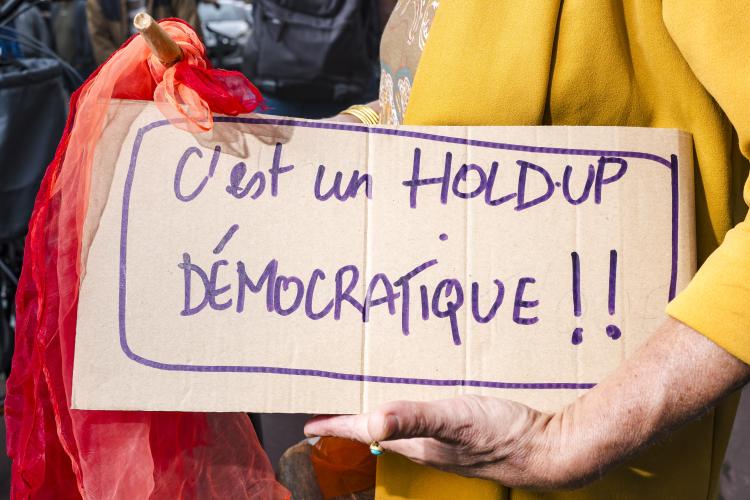 C'est un HOLD-UP
DÉMOCRATIQUE !!